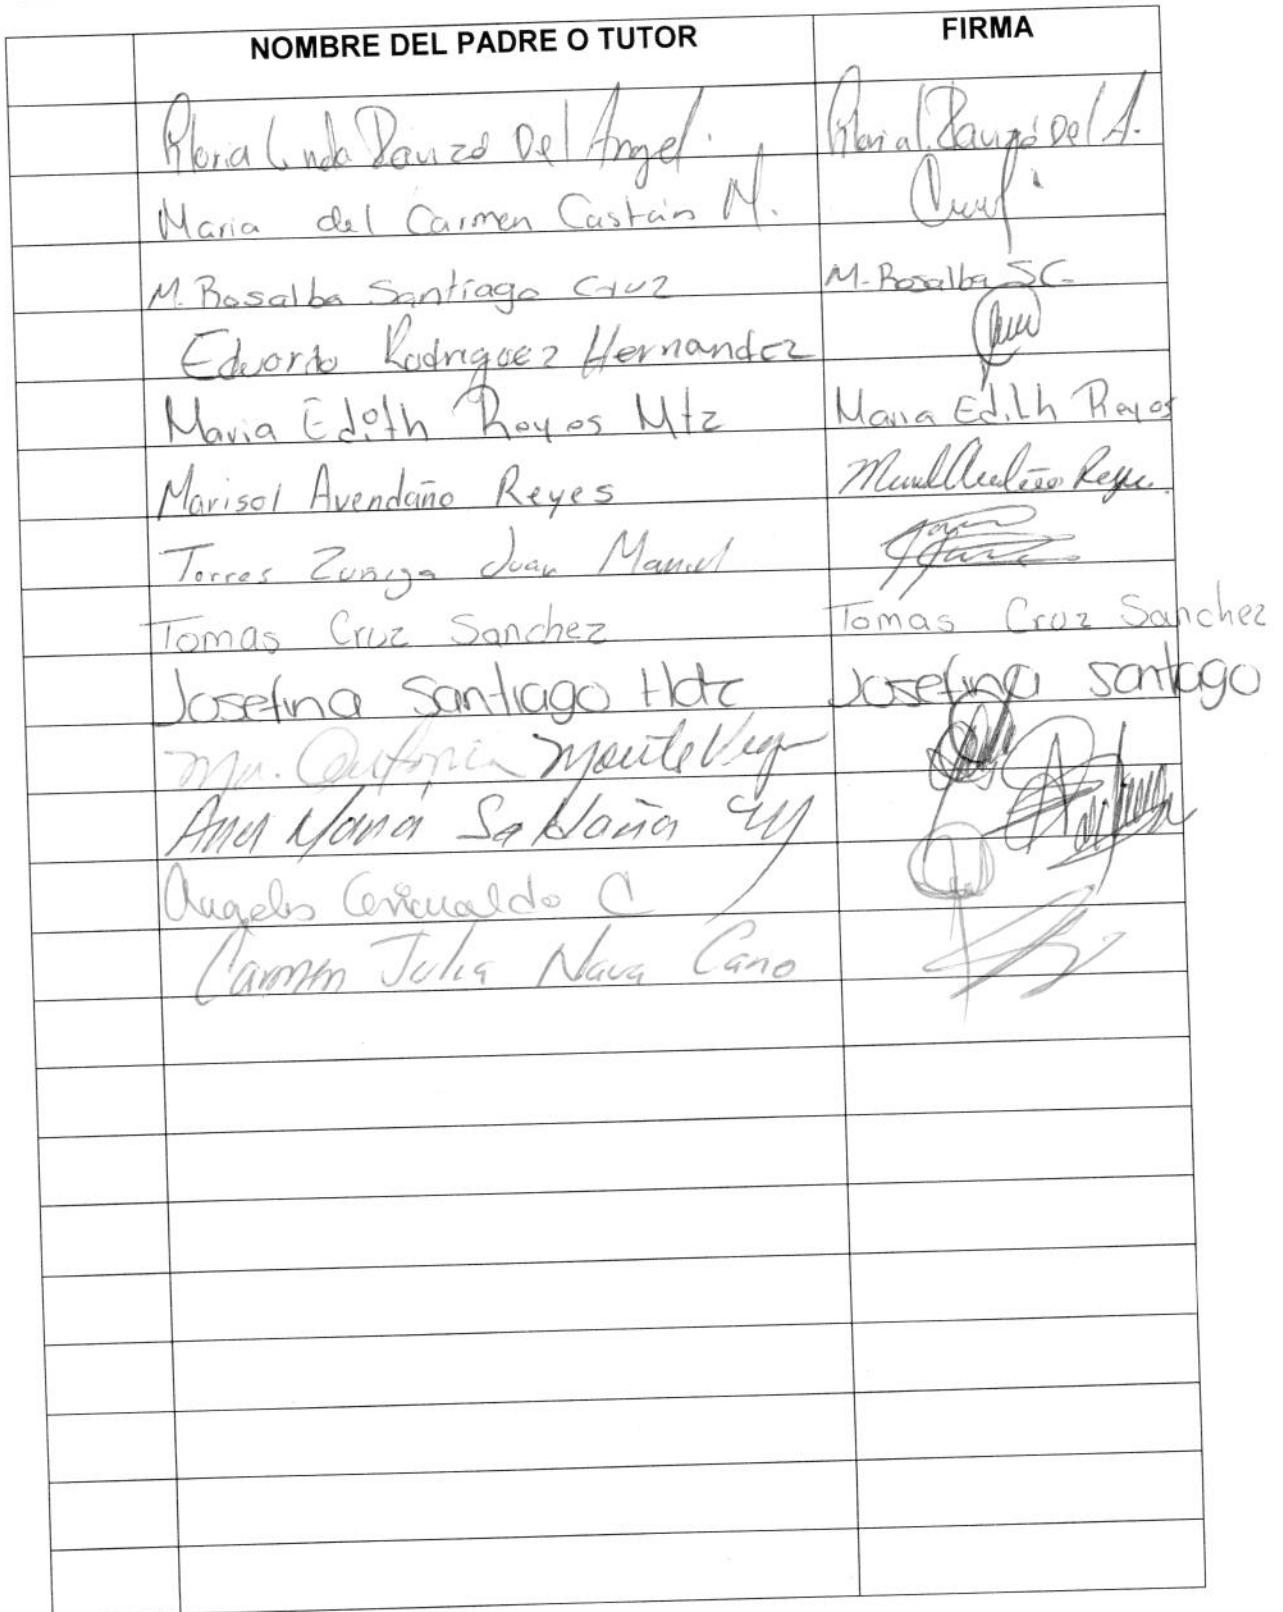 NOMBRE DEL PADRE O TUTOR FIRMA
Gloria Linda Pauzo Del Angel. Gloria l. Pauzo Del A.
Maria del Carmen Castán M.
M. Rosalba Santiago Cruz M. Rosalba SC
Eduardo Rodriguez Hernandez
Maria Edith Reyes Mtz Maria Edith Reyes
Marisol Avendaño Reyes
Torres Zuniga Juan Manuel
Tomas Cruz Sanchez Tomas Cruz Sanchez
Josefina Santiago Hdz Josefina Santiago
Ma. Antonia Monte
Ana Maria Saldaña
Angeles C
Carmen Julia Nava Cano